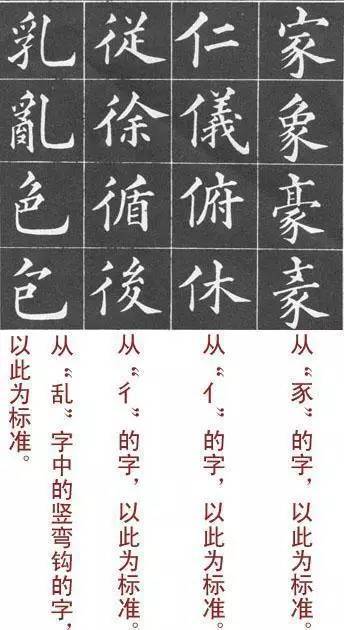 家象豪
仁儀俯休
従徐循後
乳亂色
从“豕”的字，以此为标准。
从“亻”的字，以此为标准。
从“彳”的字，以此为标准。
从“乱”字中的竖弯钩的字，
以此为标准。